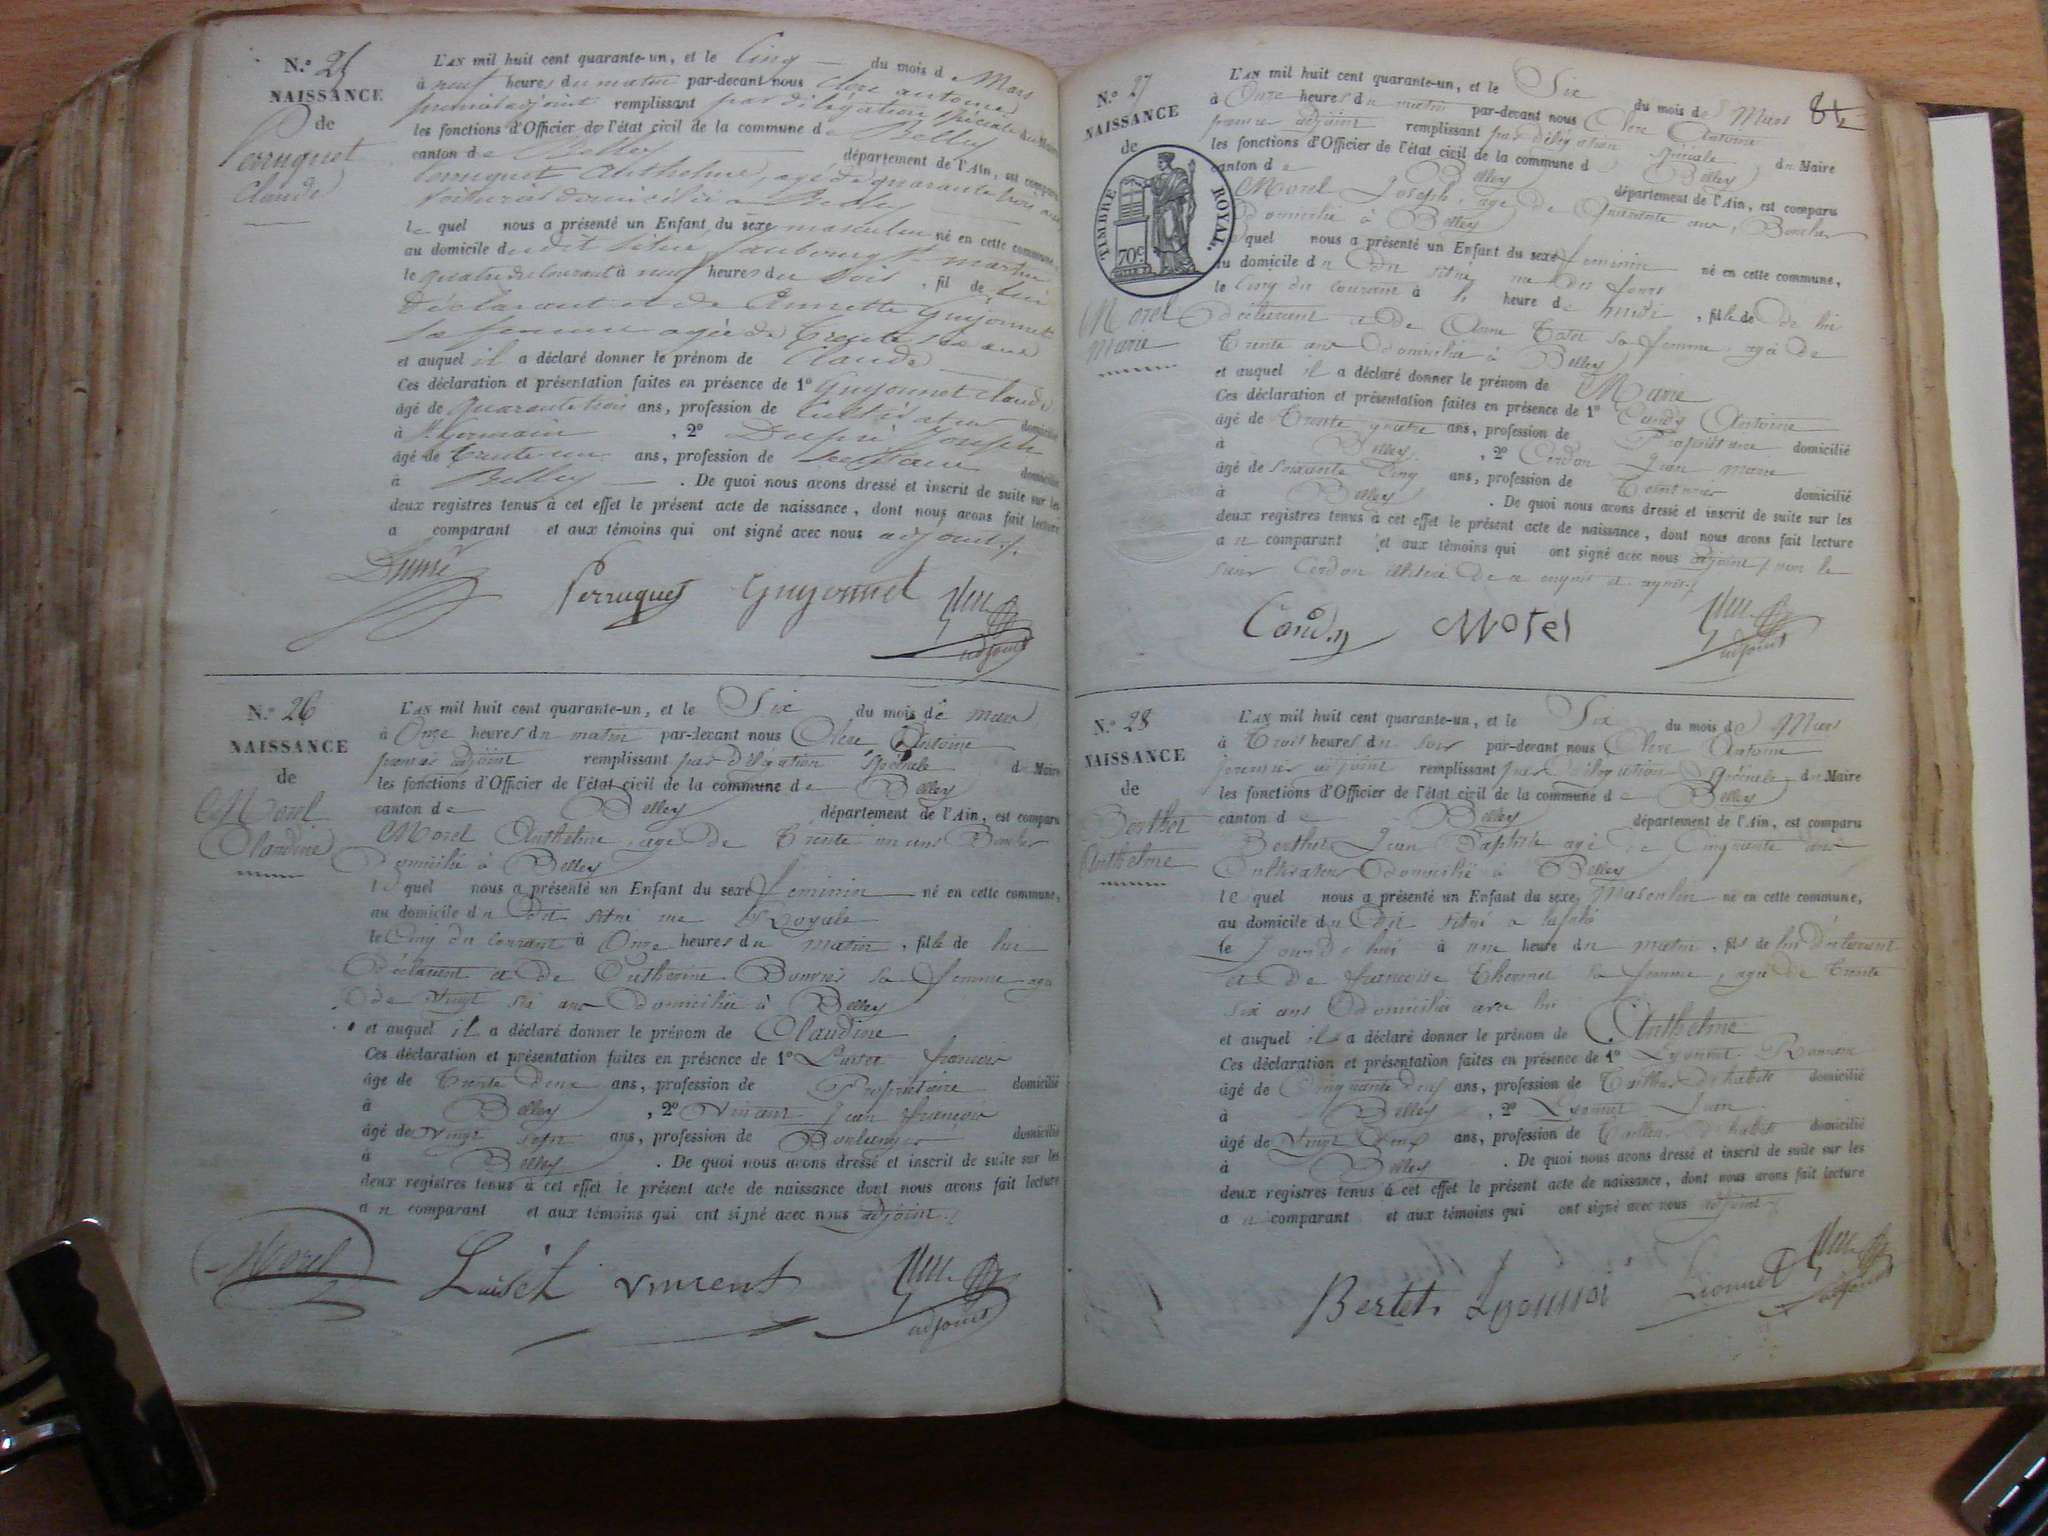 N.° 25
NAISSANCE
de
Perruquet
Claude
L'AN mil huit cent quarante-un, et le Cinq du mois d Mars
à neuf heures du matin par-devant nous Clerc antoine
premier adjoint remplissant par délégation spéciale du Maire
les fonctions d'Officier de l'état civil de la commune de Belley
canton de Belley département de l'Ain, est comparu
Perruquet Anthelme, agé de quarante trois ans
voiturier domicilié à Belley
le quel nous a présenté un Enfant du sexe masculin né en cette commune,
au domicile du dit situé faubourg St martin
le quatre du courant à neuf heures du soir, fil de lui
Déclarant et de Annette Guyonnet
sa femme agée de Trente six ans
et auquel il a déclaré donner le prénom de Claude
Ces déclaration et présentation faites en présence de 1° Guyonnet Claude
âgé de quarante trois ans, profession de Cultivateur domicilié
à St Germain, 2° Dupré Joseph
âgé de trente un ans, profession de domicilié
à Belley. De quoi nous avons dressé et inscrit de suite sur les
deux registres tenus à cet effet le présent acte de naissance, dont nous avons fait lecture
a comparant et aux témoins qui ont signé avec nous adjoint
Perruquet Guyonnet
adjoint
N.° 26
NAISSANCE
de
Morel
Claudine
L'AN mil huit cent quarante-un, et le Six du mois de mars
à Onze heures du matin par-devant nous Clerc Antoine
premier adjoint remplissant par délégation spéciale du Maire
les fonctions d'Officier de l'état civil de la commune de Belley
canton de Belley département de l'Ain, est comparu
Morel Anthelme, agé de Trente un ans Boucher
Domicilié à Belley
le quel nous a présenté un Enfant du sexe feminin né en cette commune,
au domicile du Dit situé rue Royale
le Cinq du courant à Onze heures du matin, fille de lui
déclarant et de Catherine sa femme agée
de vingt six ans Domiciliée à Belley
et auquel il a déclaré donner le prénom de Claudine
Ces déclaration et présentation faites en présence de 1° françois
âgé de Trente deux ans, profession de Propriétaire domicilié
à Belley, 2° Vincent Jean françois
âgé de vingt sept ans, profession de Boulanger domicilié
à Belley. De quoi nous avons dressé et inscrit de suite sur les
deux registres tenus à cet effet le présent acte de naissance dont nous avons fait lecture
au comparant et aux témoins qui ont signé avec nous adjoint.
Morel vincent
adjoint
N.° 27
NAISSANCE
de
TIMBRE ROYAL.
70c
Morel
Marie
L'AN mil huit cent quarante-un, et le Six du mois de Mars
à Onze heures du matin par-devant nous Clerc Antoine
premier adjoint remplissant par délégation spéciale du Maire
les fonctions d'Officier de l'état civil de la commune d Belley
canton de Belley département de l'Ain, est comparu
Morel Joseph, agé de Quarante ans, Boucher
Domicilié à Belley
le quel nous a présenté un Enfant du sexe feminin né en cette commune,
au domicile du Dit situé rue des fours
le Cinq du courant à heure de midi, fille de de lui
déclarant et de Anne sa femme, agée de
Trente ans Domiciliée à Belley
et auquel il a déclaré donner le prénom de Marie
Ces déclaration et présentation faites en présence de 1° Antoine
âgé de Trente quatre ans, profession de Propriétaire domicilié
à Belley, 2° Cordon Jean marie
âgé de soixante Cinq ans, profession de Teinturier domicilié
à Belley. De quoi nous avons dressé et inscrit de suite sur les
deux registres tenus à cet effet le présent acte de naissance, dont nous avons fait lecture
au comparant et aux témoins qui ont signé avec nous adjoint, non le
sieur Cordon illitéré de ce enquis et
Morel
adjoint
N.° 28
NAISSANCE
de
Berthet
Anthelme
L'AN mil huit cent quarante-un, et le Six du mois de Mars
à Trois heures du soir par-devant nous Clerc Antoine
premier adjoint remplissant par délégation spéciale du Maire
les fonctions d'Officier de l'état civil de la commune d Belley
canton de Belley département de l'Ain, est comparu
Berthet Jean Baptiste agé de Cinquante ans
Cultivateur Domicilié à Belley
le quel nous a présenté un Enfant du sexe Masculin né en cette commune,
au domicile du Dit situé
le Jourdhui à une heure du matin, fils de lui déclarant
et de françoise sa femme, agée de Trente
six ans Domiciliée avec lui
et auquel il a déclaré donner le prénom de Anthelme
Ces déclaration et présentation faites en présence de 1° Lyonnet
âgé de Cinquante deux ans, profession de Tailleur d'habits domicilié
à Belley, 2° Lyonnet Jean
âgé de Vingt deux ans, profession de Tailleur d'habits domicilié
à Belley. De quoi nous avons dressé et inscrit de suite sur les
deux registres tenus à cet effet le présent acte de naissance, dont nous avons fait lecture
au comparant et aux témoins qui ont signé avec nous adjoint
Bertet Lionnet
adjoint